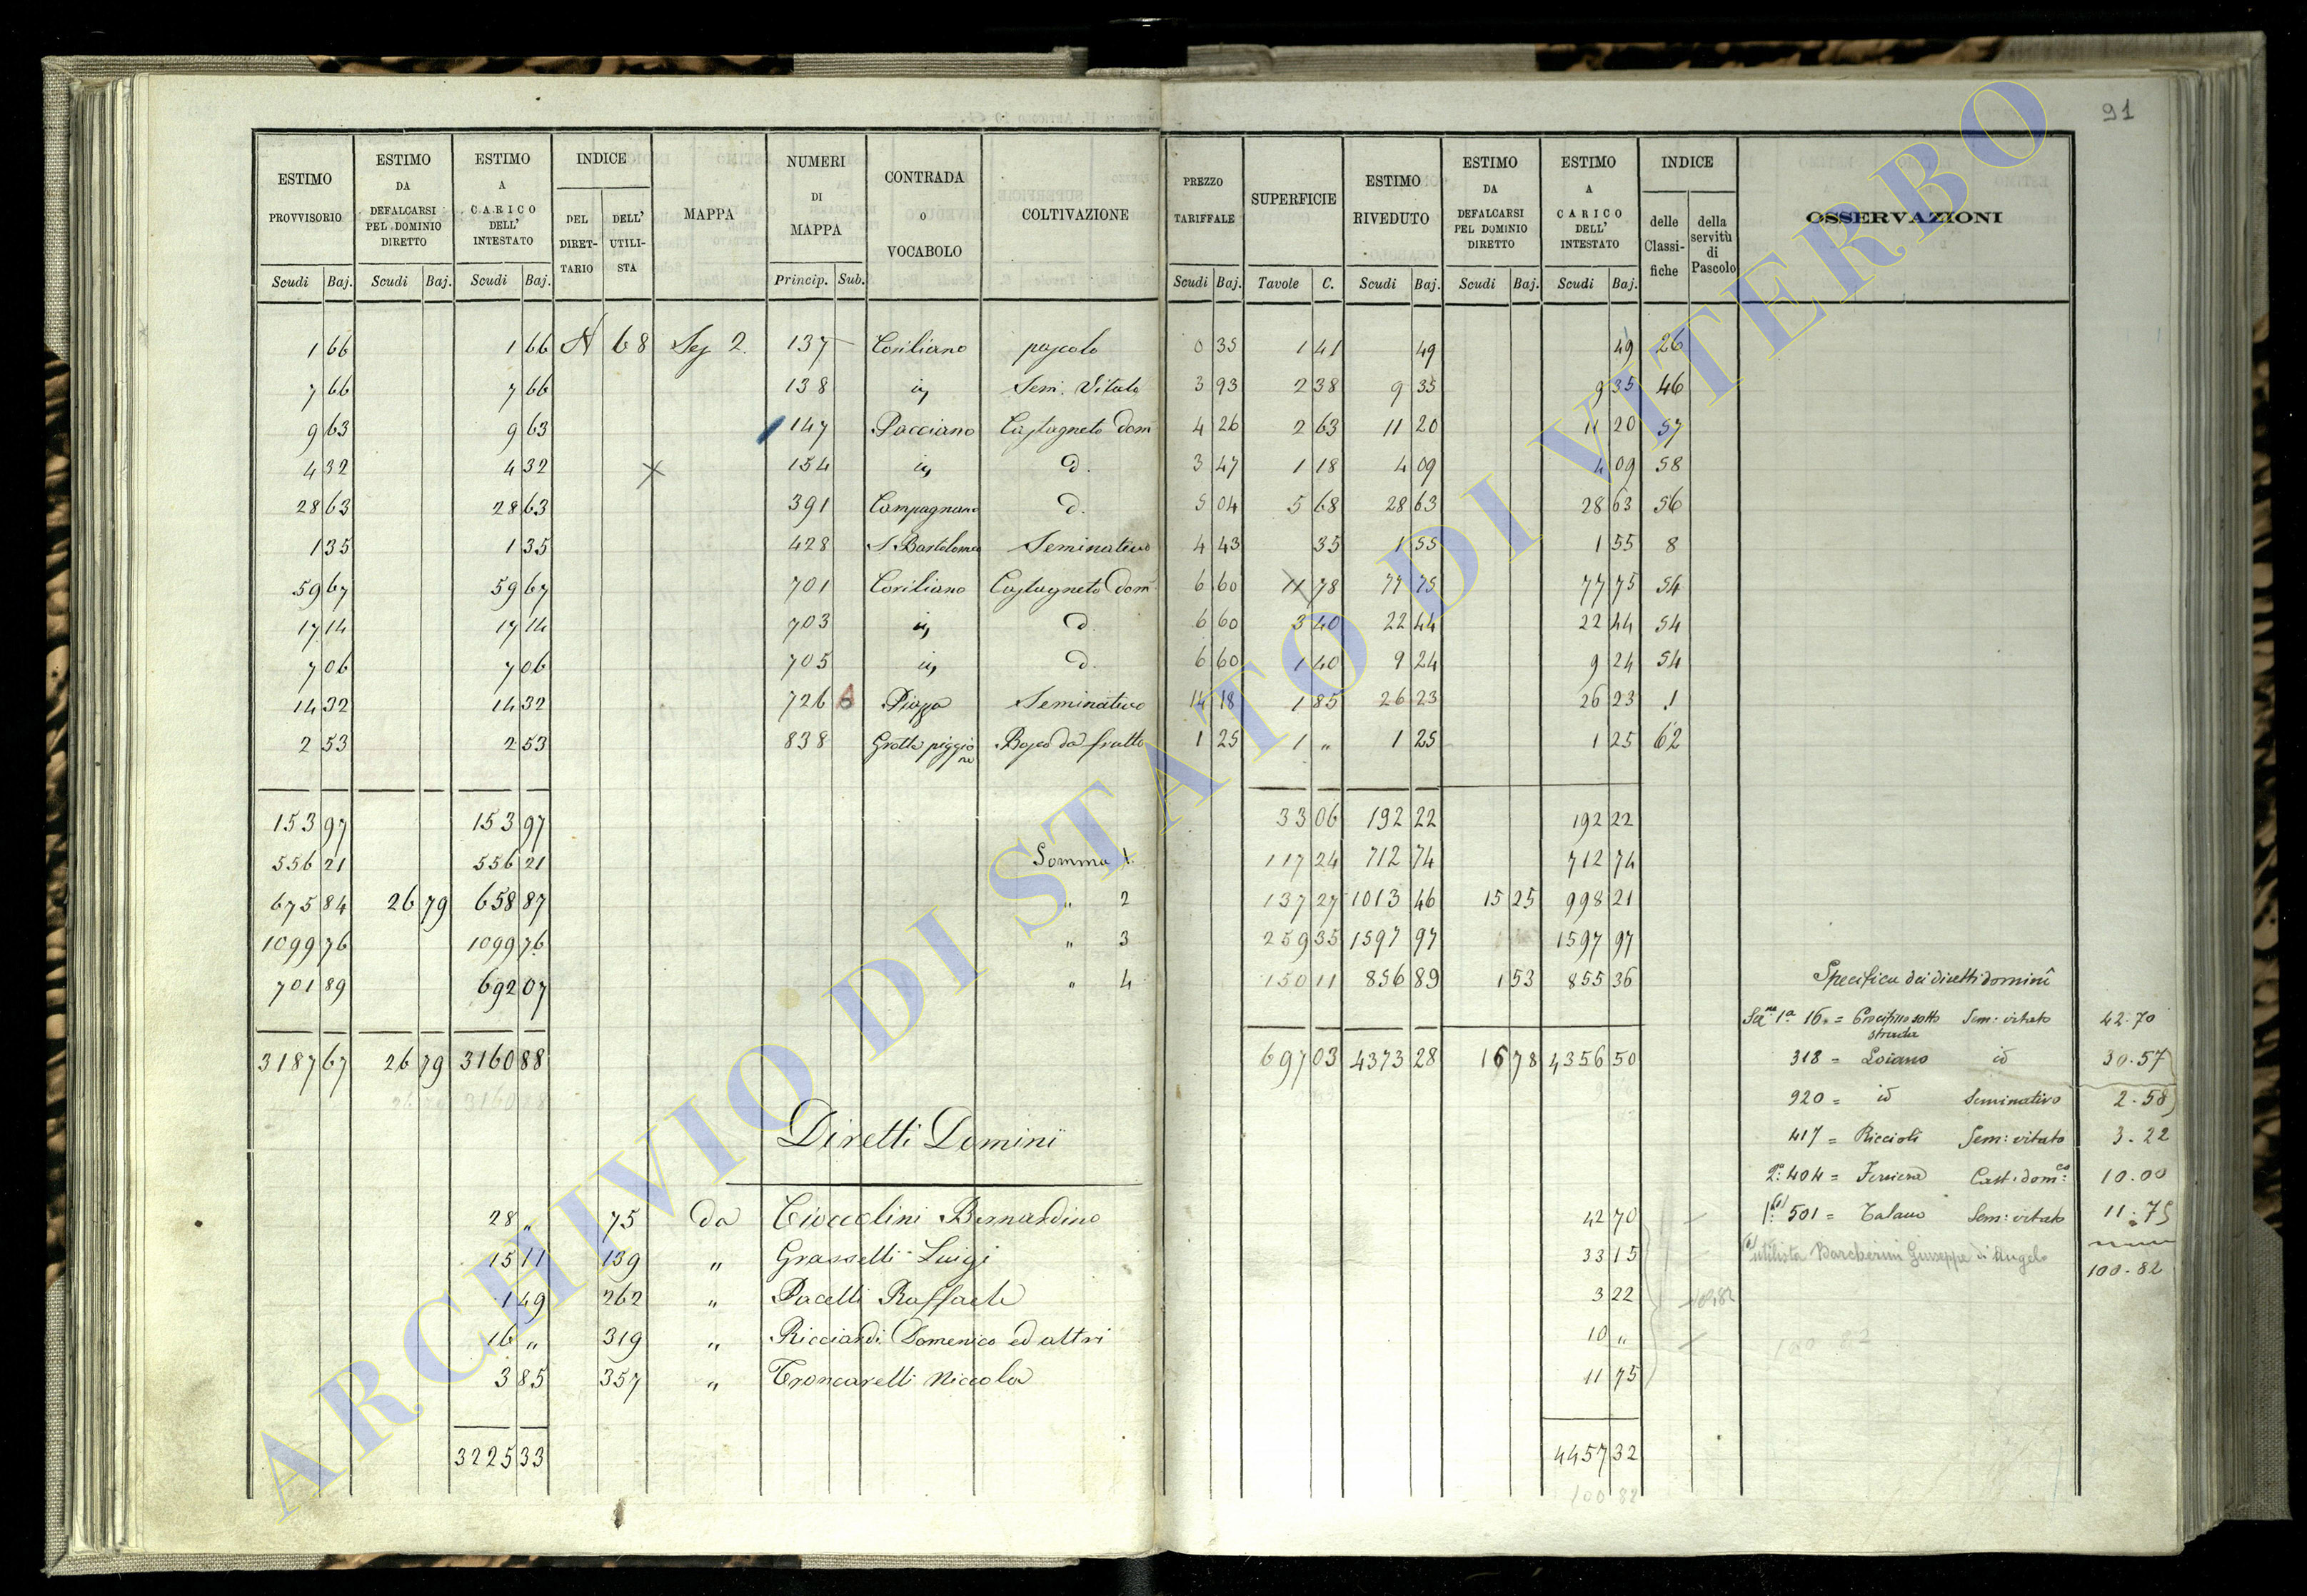 91
ESTIMO PROVVISORIO | ESTIMO DA DEFALCARSI PEL DOMINIO DIRETTO | ESTIMO A CARICO DELL' INTESTATO | INDICE | MAPPA | NUMERI DI MAPPA | CONTRADA O VOCABOLO | COLTIVAZIONE | PREZZO TARIFFALE | SUPERFICIE | ESTIMO RIVEDUTO | ESTIMO DA DEFALCARSI PEL DOMINIO DIRETTO | ESTIMO A CARICO DELL' INTESTATO | INDICE | OSSERVAZIONI
DEL DIRETTARIO | DELL' UTILISTA | delle Classifiche | della servitù di Pascolo
Scudi Baj. | Scudi Baj. | Scudi Baj. | Princip. Sub. | Scudi Baj. | Tavole C. | Scudi Baj. | Scudi Baj. | Scudi Baj.
1 66 | 1 66 | N | 68 | Sez 2. | 137 | Coriliano | pascolo | 0 35 | 1 41 | 49 | 49 | 26
7 66 | 7 66 | 138 | id | Sem. Vitato | 3 93 | 2 38 | 9 35 | 9 35 | 46
9 63 | 9 63 | 147 | Pacciano | Castagneto dom | 4 26 | 2 63 | 11 20 | 11 20 | 57
4 32 | 4 32 | 154 | id | d. | 3 47 | 1 18 | 4 09 | 4 09 | 58
28 63 | 28 63 | 391 | Campagnano | d. | 5 04 | 5 68 | 28 63 | 28 63 | 56
1 35 | 1 35 | 428 | S. Bartolomeo | Seminativo | 4 43 | 35 | 1 55 | 1 55 | 8
59 67 | 59 67 | 701 | Coriliano | Castagneto dom | 6 60 | 11 78 | 77 75 | 77 75 | 54
17 14 | 17 14 | 703 | id | d. | 6 60 | 3 40 | 22 44 | 22 44 | 54
7 06 | 7 06 | 705 | id | d. | 6 60 | 1 40 | 9 24 | 9 24 | 54
14 32 | 14 32 | 726 | Piazza | Seminativo | 14 18 | 1 85 | 26 23 | 26 23 | 1
2 53 | 2 53 | 838 | Grotte piggiore | Bosco da frutto | 1 25 | 1 " | 1 25 | 1 25 | 62
153 97 | 153 97 | 33 06 | 192 22 | 192 22
556 21 | 556 21 | Somma 1. | 117 24 | 712 74 | 712 74
675 84 | 26 79 | 658 87 | " 2 | 137 27 | 1013 46 | 15 25 | 998 21
1099 76 | 1099 76 | " 3 | 259 35 | 1597 97 | 1597 97
701 89 | 692 07 | " 4 | 150 11 | 856 89 | 1 53 | 855 36
3187 67 | 26 79 | 3160 88 | 697 03 | 4373 28 | 16 78 | 4356 50
Diretti Domini
28 " | 75 | da | Cioccolini Bernardino | 42 70
15 11 | 139 | " | Grasselli Luigi | 33 15
1 49 | 262 | " | Pacelli Raffaele | 3 22
16 " | 319 | " | Ricciardi Domenico ed altri | 10 "
3 85 | 357 | " | Troncarelli Niccola | 11 75
3225 33 | 4457 32
100 82
Specifica dei diretti domini
Sez.ne 1a 16. = Crocifisso sotto strada Sem: vitato 42.70
318 = Loiano id 30.57
920 = id Seminativo 2.58
417 = Riccioli Sem: vitato 3.22
2a: 404 = Cast: dom: 10.00
1a: 501 = Talano Sem: vitato 11.75
utilista Barcherini Giuseppe di Angelo
100.82
100 82
ARCHIVIO DI STATO DI VITERBO